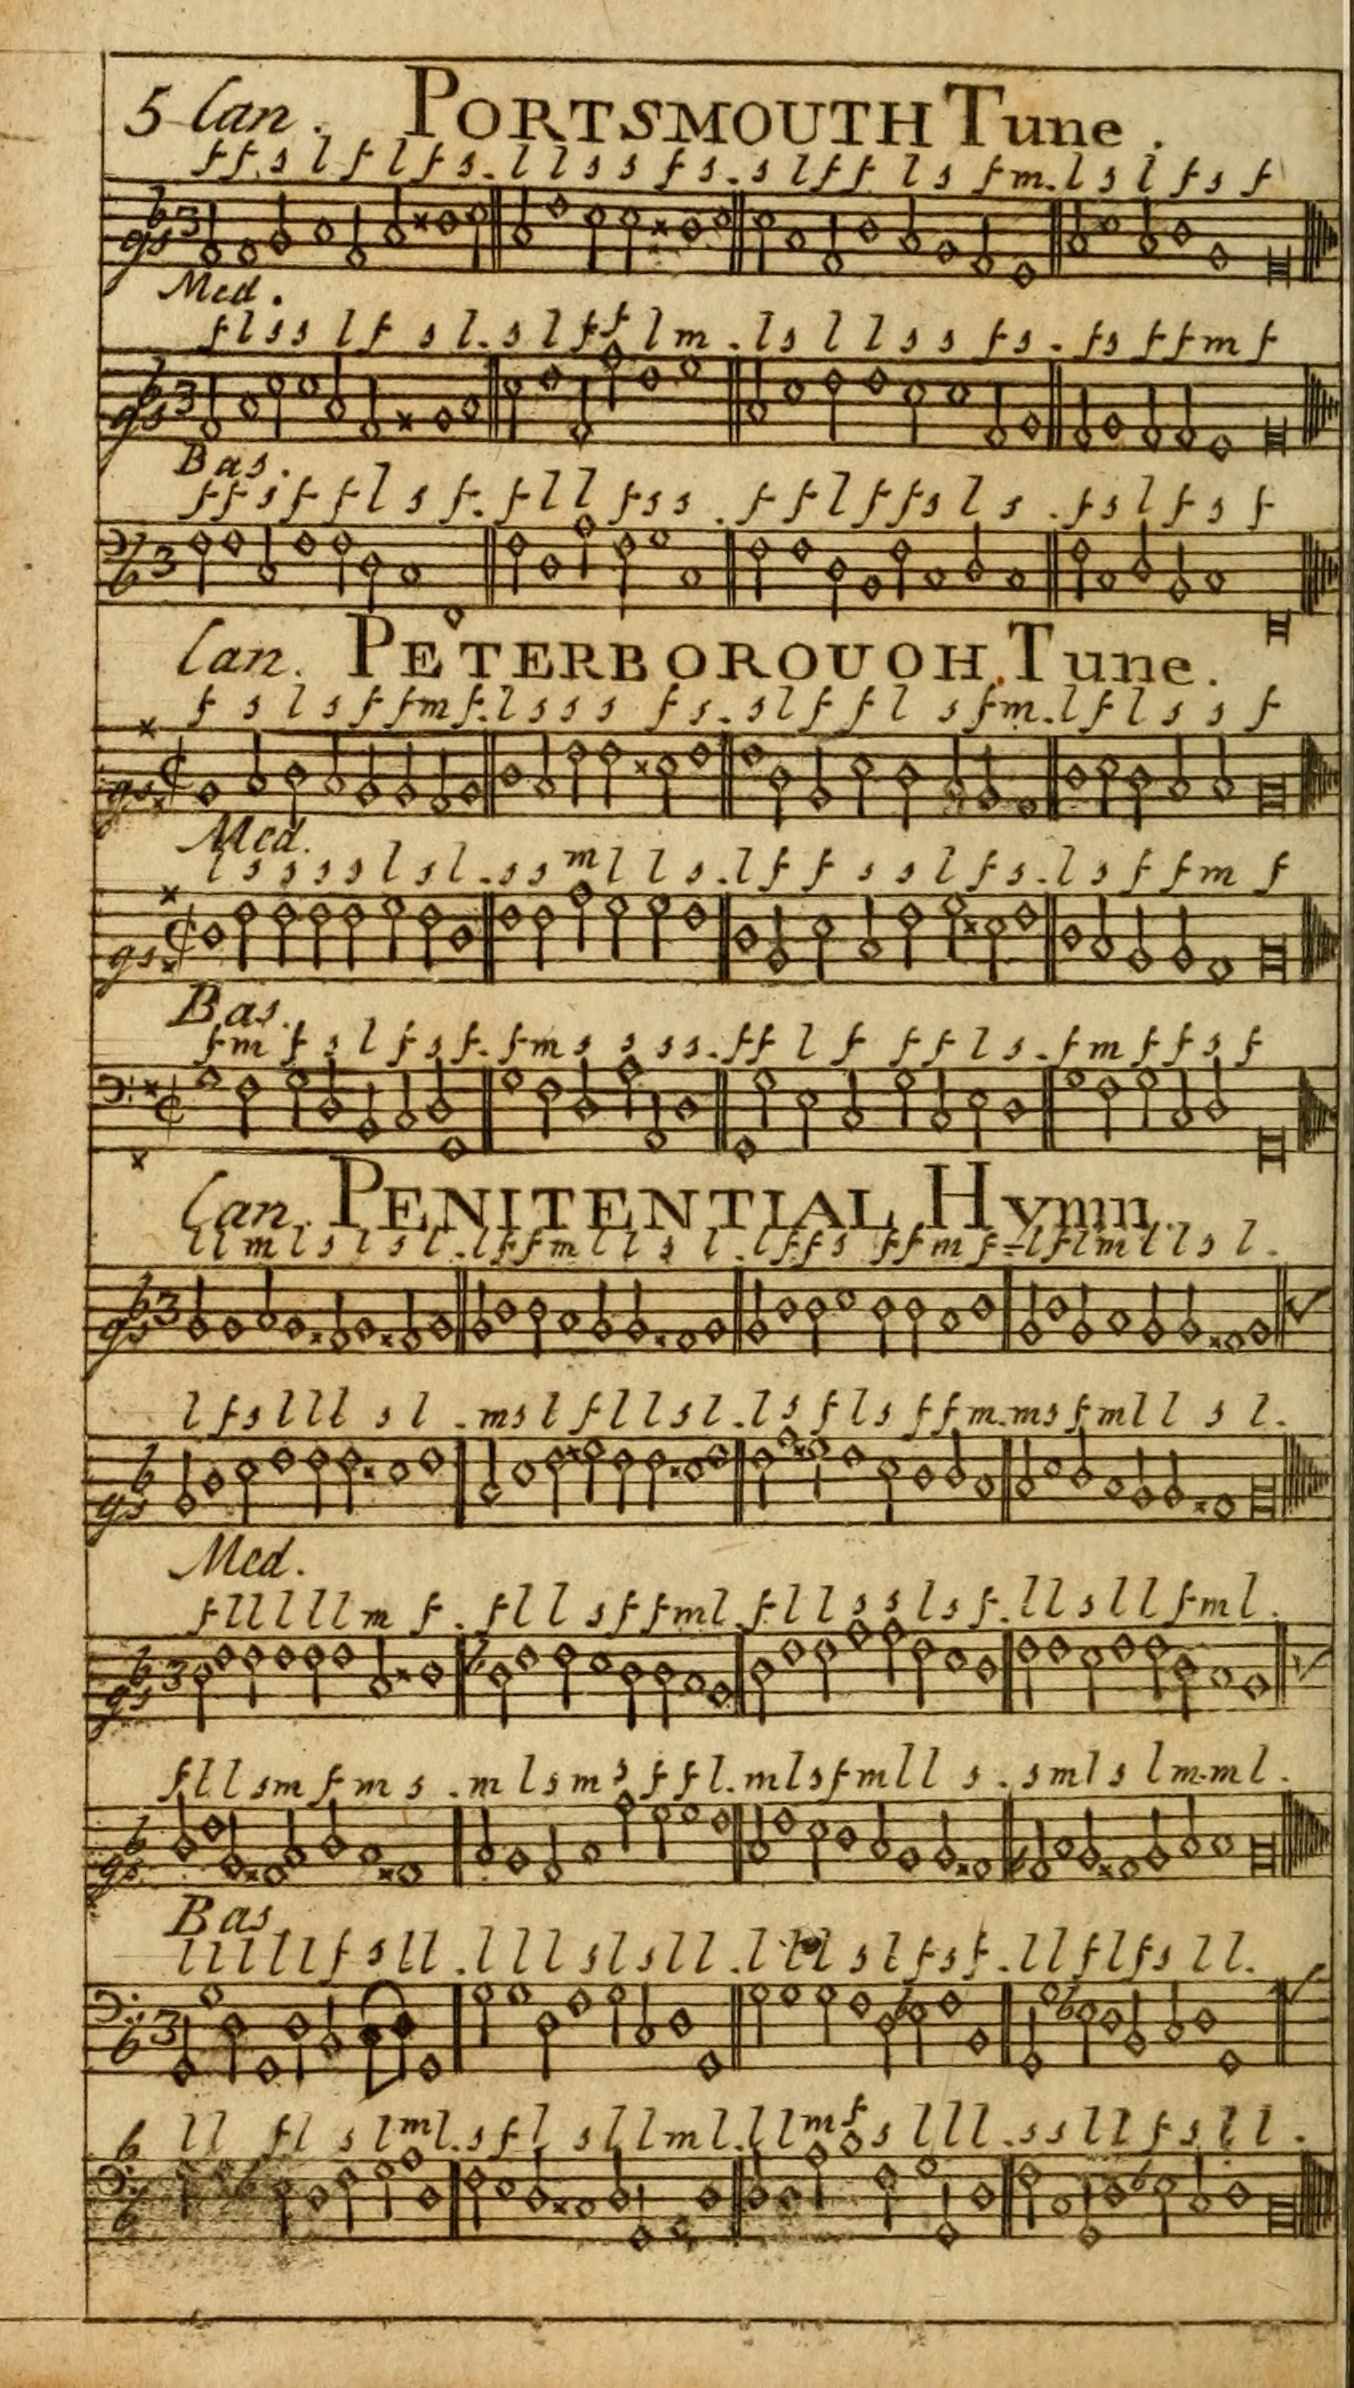 5 Can. PORTSMOUTH Tune.
f f s l f l f s. l l s s f s. s l f f l s f m. l s l f s f
gs b 3
Med.
f l s s l f s l. s l f f l m. l s l l s s f s. f s f f m f
gs b 3
Bas.
f f s f f l s f. f l l f s s. f f l f f s l s. f s l f s f
b 3
Can. PETERBOROUOH. Tune.
f s l s f f m f. l s s s f s. s l f f l s f m. l f l s s f
gs
Med.
l s s s s l s l. s s m l l s. l f f s s l f s. l s f f m f
gs
Bas.
f m f s l f s f. f m s s s s. f f l f f f l s. f m f f s f
Can. PENITENTIAL Hymn.
l l m l s l s l. l f f m l l s l. l f f s f f m f. l f l m l l s l.
gs b 3
l f s l l l s l. m s l f l l s l. l s f l s f f m. m s f m l l s l.
gs b
Med.
f l l l l l m f. f l l s f f m l. f l l s s l s f. l l s l l f m l.
gs b 3
f l l s m f m s. m l s m s f f l. m l s f m l l s. s m l s l m. m l.
gs b
Bas
l l l l l f s l l. l l l s l s l l. l l l s l f s f. l l f l f s l l.
b 3
l l f l s l m l. s f l s l l m l. l l m f s l l l. s s l l f s l l.
b